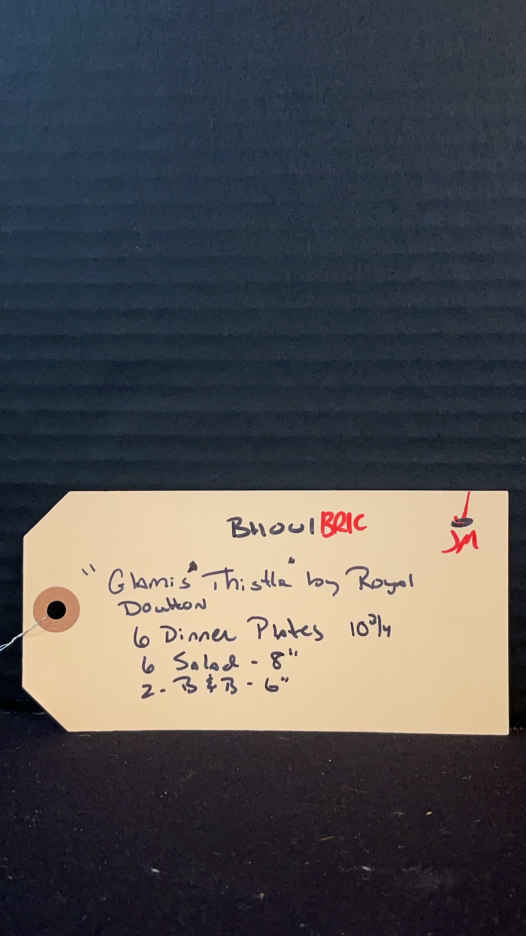 BHOU1BRIC
JM
"Glamis" Thistle" by Royal
Doulton
6 Dinner Plates 10 3/4
6 Salad - 8"
2 - B & B - 6"